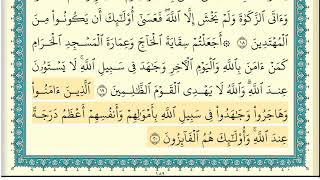 وَءَاتَى ٱلزَّكَوٰةَ وَلَمْ يَخْشَ إِلَّا ٱللَّهَ ۖ فَعَسَىٰٓ أُو۟لَٰٓئِكَ أَن يَكُونُوا۟ مِنَ
ٱلْمُهْتَدِينَ ١٨ ۞ أَجَعَلْتُمْ سِقَايَةَ ٱلْحَآجِّ وَعِمَارَةَ ٱلْمَسْجِدِ ٱلْحَرَامِ
كَمَنْ ءَامَنَ بِٱللَّهِ وَٱلْيَوْمِ ٱلْءَاخِرِ وَجَٰهَدَ فِى سَبِيلِ ٱللَّهِ ۚ لَا يَسْتَوُۥنَ
عِندَ ٱللَّهِ ۗ وَٱللَّهُ لَا يَهْدِى ٱلْقَوْمَ ٱلظَّٰلِمِينَ ١٩ ٱلَّذِينَ ءَامَنُوا۟
وَهَاجَرُوا۟ وَجَٰهَدُوا۟ فِى سَبِيلِ ٱللَّهِ بِأَمْوَٰلِهِمْ وَأَنفُسِهِمْ أَعْظَمُ دَرَجَةً
عِندَ ٱللَّهِ ۚ وَأُو۟لَٰٓئِكَ هُمُ ٱلْفَآئِزُونَ ٢٠
١٨٩